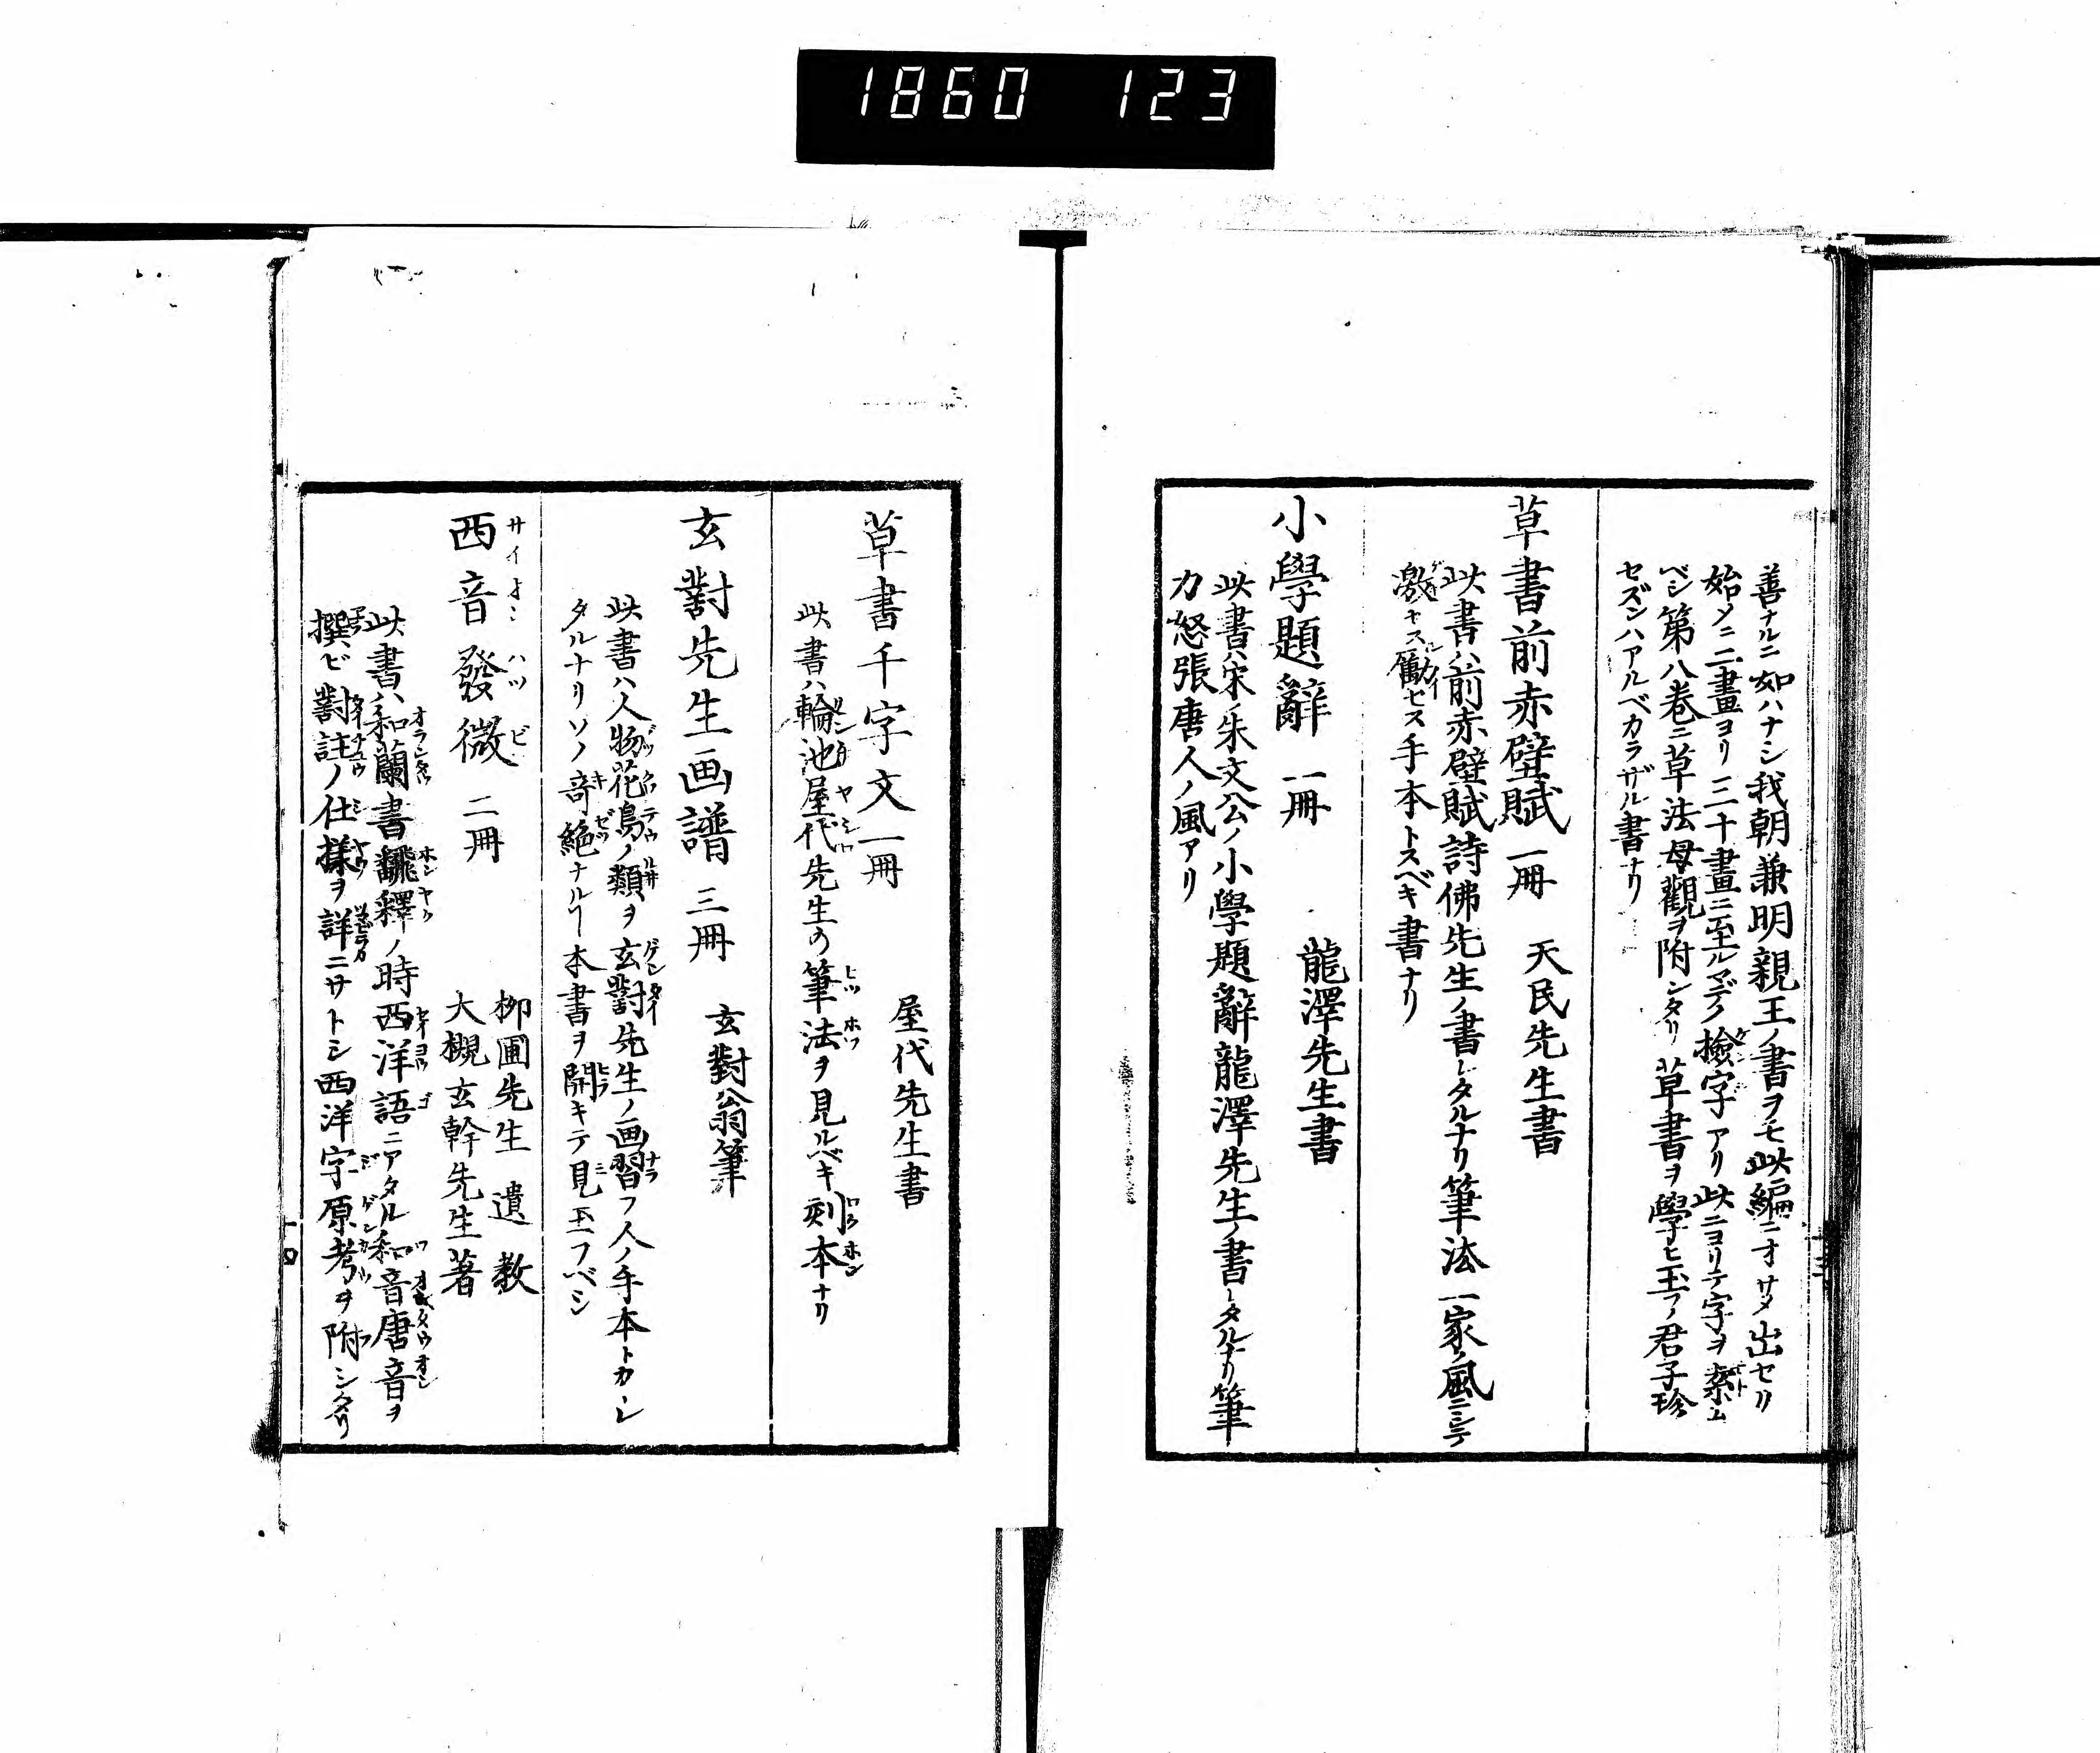 1860 123
善ナルニ如ハナシ我朝兼明親王ノ書ヲモ此編ニオサメ出セリ
始メニ二畫ヨリ三十畫ニ至ルマデノ檢字アリ此ニヨリテ字ヲ索ム
ベシ第八巻ニ草法母觀ヲ附シタリ草書ヲ學ヒ玉フノ君子珍
セズンハアルベカラザル書ナリ
草書前赤壁賦 一冊 天民先生書
此書ハ前赤壁賦詩佛先生ノ書シタルナリ筆法一家ノ風ニシテ
激キス勵セス手本トスベキ書ナリ
小學題辭 一冊 龍澤先生書
此書ハ宋ノ朱文公ノ小學題辭龍澤先生ノ書シタルナリ筆
力怒張唐人ノ風アリ
草書千字文 一冊 屋代先生書
此書ハ輪池屋代先生の筆法ヲ見ルベキ刻本ナリ
玄對先生画譜 三冊 玄對翁筆
此書ハ人物花鳥ノ類ヲ玄對先生ノ画習フ人ノ手本トカヽレ
タルナリソノ奇絶ナルヿ本書ヲ開キテ見玉フベシ
西音發微 二冊 柳圃先生 遺教
大槻玄幹先生著
此書ハ和蘭書飜釋ノ時西洋語ニアタル和音唐音ヲ
撰ビ對註ノ仕様ヲ詳ニサトシ西洋字原考ヲ附シタリ
十四